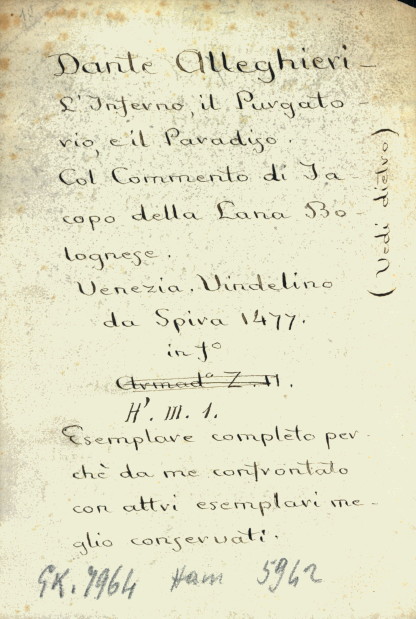 Dante Alleghieri -
L'Inferno, il Purgato -
rio, e il Paradiso.
Col Commento di Ja -
copo della Lana Bo -
lognese.
Venezia. Vindelino
da Spira 1477.
in fº
Armadº Z. II.
H'. m. 1.
Esemplare completo per -
chè da me confrontato
con altri esemplari me -
glio conservati.
(Vedi dietro)
GK. 7964 Ham 5942